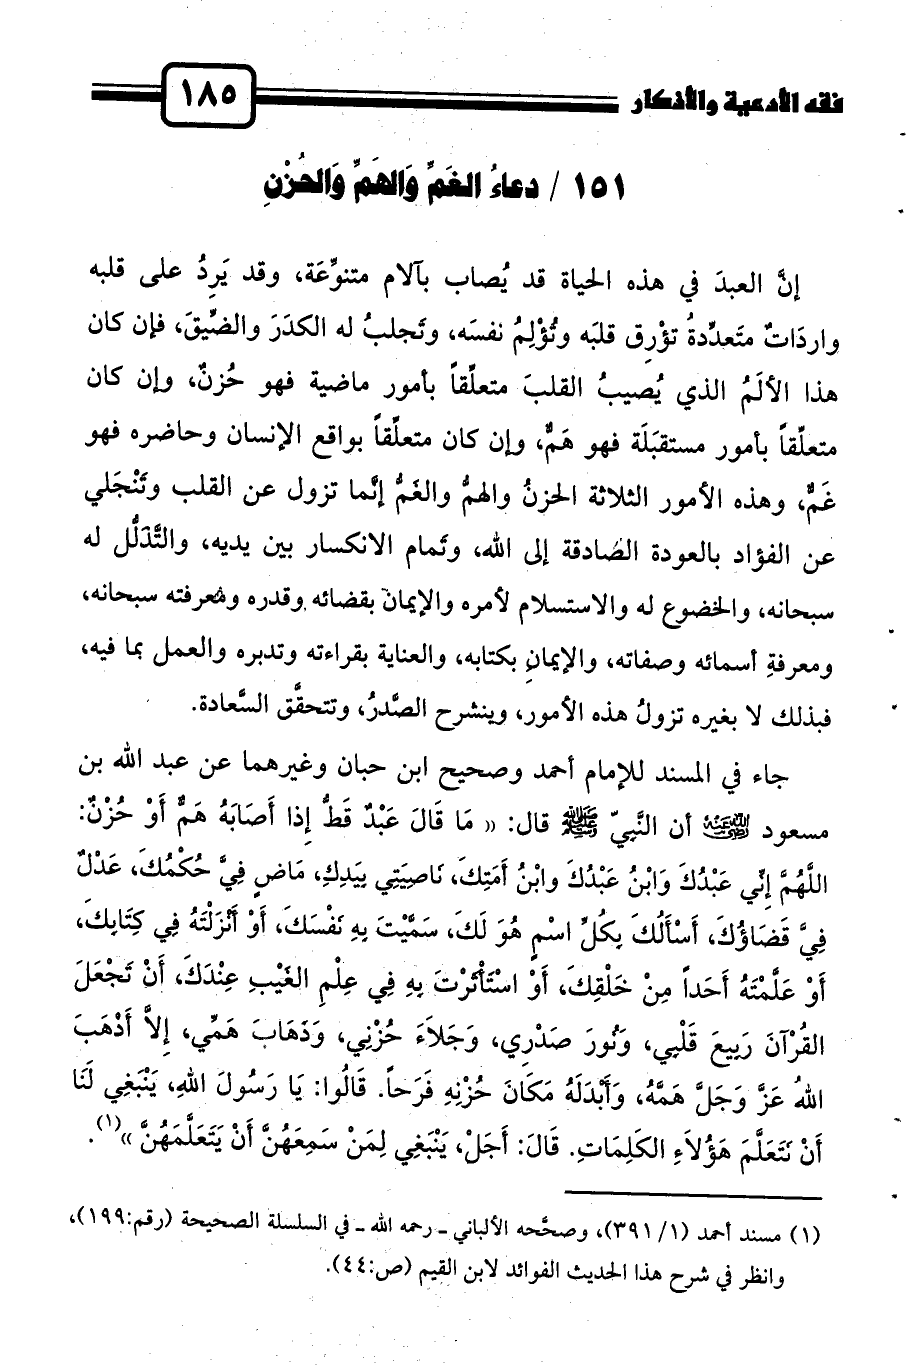 فقه الأدعية والأذكار
١٨٥
١٥١ / دعاءُ الغَمِّ وَالهَمِّ وَالحُزْنِ
إنَّ العبدَ في هذه الحياة قد يُصاب بآلام متنوِّعَة، وقد يَرِدُ على قلبه
وارِدَاتٌ متعدِّدةُ تؤْرِق قلبَه وتُؤْلِمُ نفسَه، وتَجلبُ له الكدَرَ والضِّيقَ، فإن كان
هذا الألَمُ الذي يُصيبُ القلبَ متعلِّقاً بأمور ماضية فهو حُزنٌ، وإن كان
متعلِّقاً بأمور مستقبَلَة فهو هَمٌّ، وإن كان متعلِّقاً بواقع الإنسان وحاضره فهو
غَمٌّ، وهذه الأمور الثلاثة الحزنُ والهمُّ والغَمُّ إنَّما تزول عن القلب وتَنْجَلي
عن الفؤاد بالعودة الصَّادقة إلى الله، وتَمام الانكسار بين يديه، والتَّذَلُّل له
سبحانه، والخضوع له والاستسلام لأمره والإيمان بقضائه وقدره ومعرفته سبحانه،
ومعرفةِ أسمائه وصفاته، والإيمانِ بكتابه، والعناية بقراءته وتدبره والعمل بما فيه،
فبذلك لا بغيره تزولُ هذه الأمور، وينشرح الصَّدرُ، وتتحقَّق السَّعادة.
جاء في المسند للإمام أحمد وصحيح ابن حبان وغيرهما عن عبد الله بن
مسعود رضي الله عنه أن النَّبيّ ﷺ قال: « مَا قَالَ عَبْدٌ قَطُّ إذا أَصَابَهُ هَمٌّ أَوْ حُزْنٌ:
اللَّهُمَّ إِنِّي عَبْدُكَ وَابْنُ عَبْدُكَ وابْنُ أَمَتِكَ، نَاصِيَتِي بِيَدِكِ، مَاضٍ فِيَّ حُكْمُكَ، عَدْلٌ
فِيَّ قَضَاؤُكَ، أَسْأَلُكَ بِكُلِّ اسْمٍ هُوَ لَكَ، سَمَّيْتَ بِهِ نَفْسَكَ، أَوْ أَنْزَلْتَهُ فِي كِتَابِكَ،
أَوْ عَلَّمْتَهُ أَحَداً مِنْ خَلْقِكَ، أَوْ اسْتَأْثَرْتَ بِهِ فِي عِلْمِ الغَيْبِ عِنْدَكَ، أَنْ تَجْعَلَ
القُرْآنَ رَبِيعَ قَلْبِي، وَنُورَ صَدْرِي، وَجَلاَءَ حُزْنِي، وَذَهَابَ هَمِّي، إلاَّ أَذْهَبَ
اللهُ عَزَّ وَجَلَّ هَمَّهُ، وَأَبْدَلَهُ مَكَانَ حُزْنِهِ فَرَحاً. قَالُوا: يَا رَسُولَ اللهِ، يَنْبَغِي لَنَا
أَنْ نَتَعَلَّمَ هَؤُلاَءِ الكَلِمَاتِ. قَالَ: أَجَلْ، يَنْبَغِي لِمَنْ سَمِعَهُنَّ أَنْ يَتَعَلَّمَهُنَّ »(١).
(١) مسند أحمد (٣٩١/١)، وصحَّحه الألباني ـ رحمه الله ـ في السلسلة الصحيحة (رقم:١٩٩)،
وانظر في شرح هذا الحديث الفوائد لابن القيم (ص:٤٤).